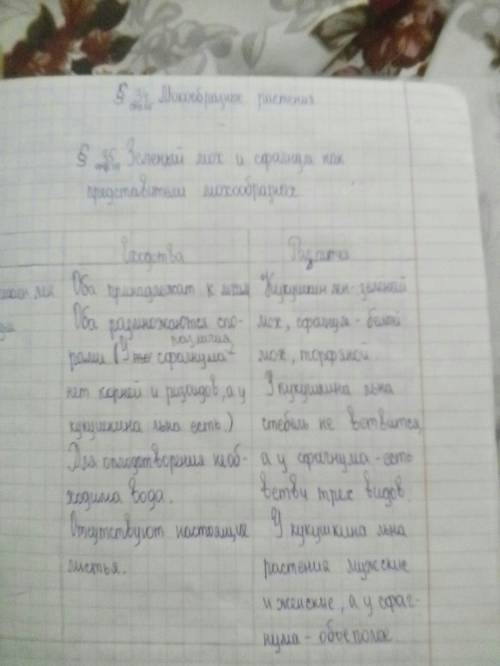 § 34 Мохообразные растения.
§ 35 Зеленый мох и сфагнум как
представители мохообразных.
Сходства
Оба принадлежат к мхам
Оба размножаются спо-
рами (У сфагнума
различия
нет корней и ризоидов, а у
кукушкина льна есть.)
Для оплодотворения необ-
ходима вода.
Отсутствуют настоящие
листья.
Различия
Кукушкин лен - зеленый
мох, сфагнум - белый
мох, торфяной
У кукушкина льна
стебель не ветвится,
а у сфагнума - есть
ветви трех видов.
У кукушкина льна
растения мужские
и женские, а у сфаг-
нума - обоеполое